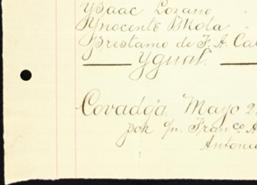 Ysaac Lozano
Ynocente Mola
Prestamo de F. A. Cal
Ygual.
Covadga Mayo 2
por Franco A
Antonio